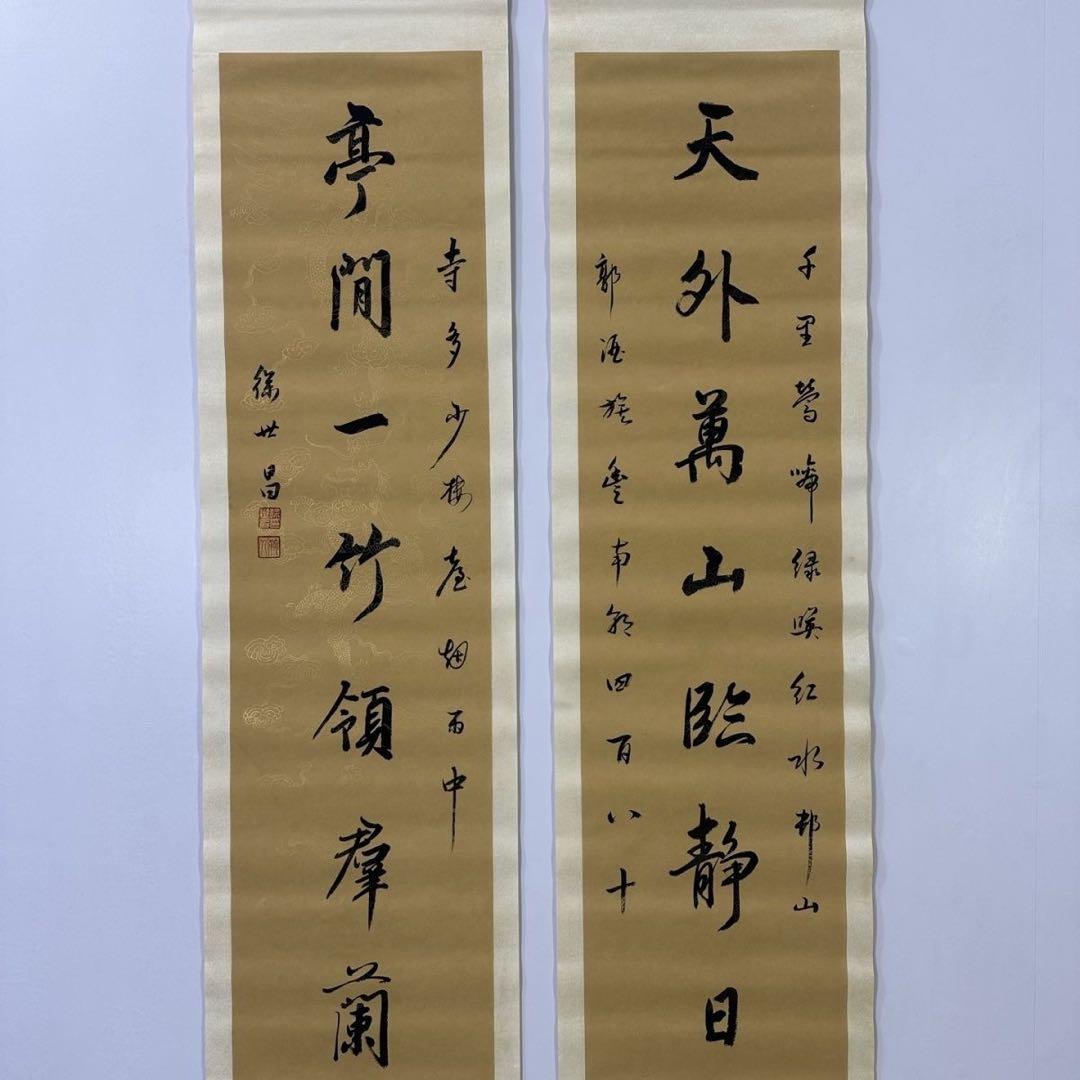 千里莺啼绿映红水邨山
天外萬山臨静日
郭酒旗風南朝四百八十
寺多少樓臺烟雨中
亭間一竹領羣蘭
徐世昌